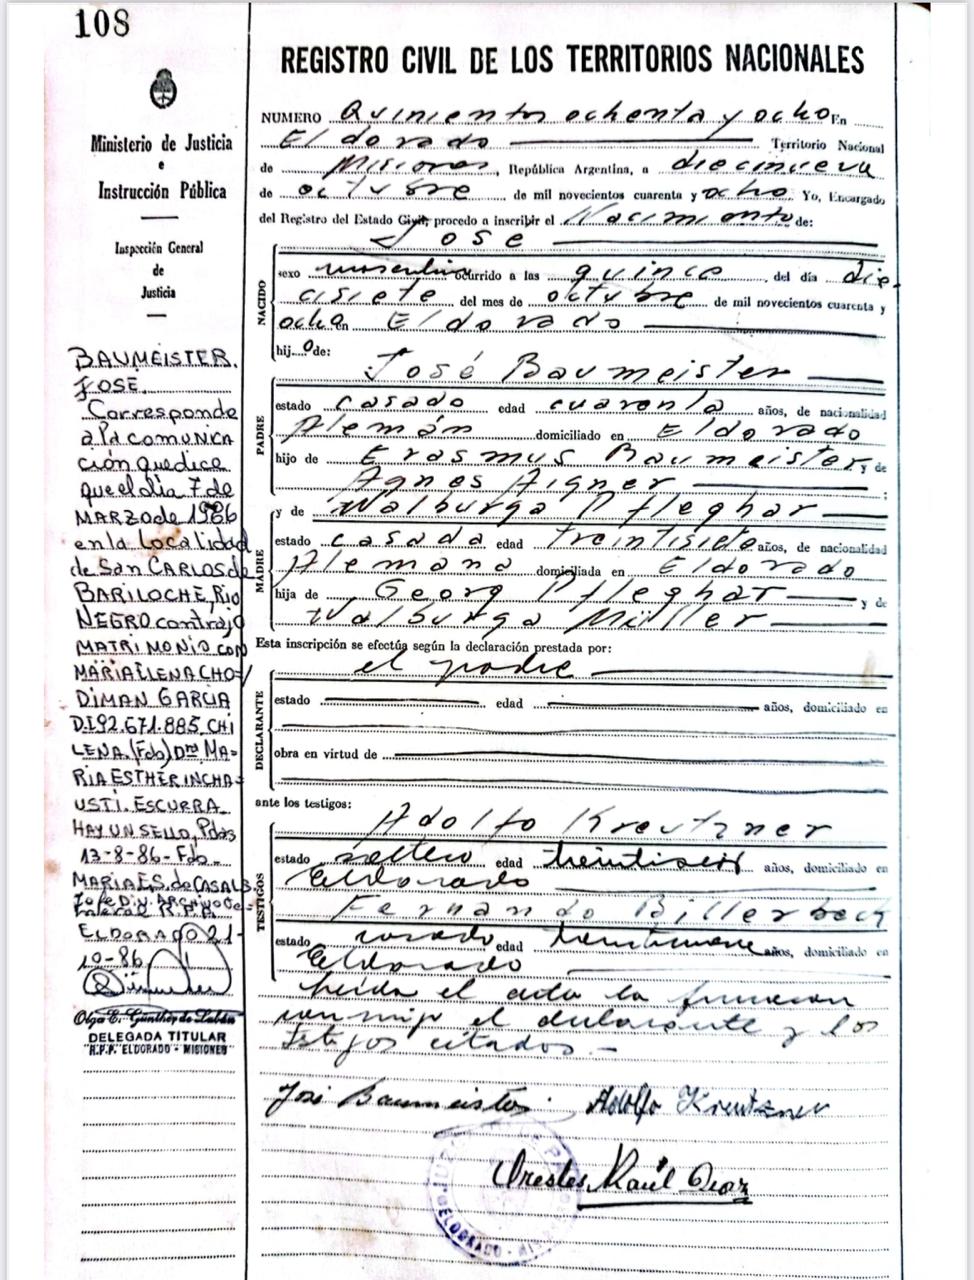 108
REGISTRO CIVIL DE LOS TERRITORIOS NACIONALES
Ministerio de Justicia
e
Instrucción Pública
Inspección General
de
Justicia
NUMERO Quinientos ochenta y ocho En
Eldorado Territorio Nacional
de Misiones, República Argentina, a diecinueve
de octubre de mil novecientos cuarenta y ocho Yo, Encargado
del Registro del Estado Civil, procedo a inscribir el Nacimiento de:
Jose
NACIDO
sexo masculino ocurrido a las quince del día die-
cisiete del mes de octubre de mil novecientos cuarenta y
ocho en Eldorado
hij o de:
PADRE
José Baumeister
estado casado edad cuarenta años, de nacionalidad
Alemán domiciliado en Eldorado
hijo de Erasmus Baumeister y de
Agnes Aigner ;
MADRE
y de Walburga Pfleghar
estado casada edad treintisiete años, de nacionalidad
Alemana domiciliada en Eldorado
hija de Georg Pfleghar y de
Walburga Müller
Esta inscripción se efectúa según la declaración prestada por:
el padre
DECLARANTE
estado edad años, domiciliado en
obra en virtud de
ante los testigos:
TESTIGOS
Adolfo Kreutzner
estado soltero edad años, domiciliado en
Eldorado
Fernando Billerbeck
estado casado edad años, domiciliado en
Eldorado
Leida el acta la firmaron
conmigo el declarante y los
testigos citados.-
José Baumeister. Adolfo Kreutzner
Orestes Raúl Diaz
BAUMEISTER.
JOSE.
Corresponde
a la comunica
ción que dice
que el día 7 de
MARZO de 1986
en la localidad
de San CARLOS de
BARILOCHE, Rio
NEGRO contrajo
MATRIMONIO con
MARIA ELENA CHO-
DIMAN GARCIA
D.I 92.671.885 CHI
LENA. (Fdo) Dra MA-
RIA ESTHER INCHA-
USTI. ESCURRA
HAY UN SELLO, Pdas
13-8-86-Fdo.-
MARIA ES. de CASAL
Jefe Div. ARCHIVO Ge-
neral R.P.P.
ELDORADO 21-
10-86.
Olga E. Günther de
DELEGADA TITULAR
R.P.P. ELDORADO - MISIONES